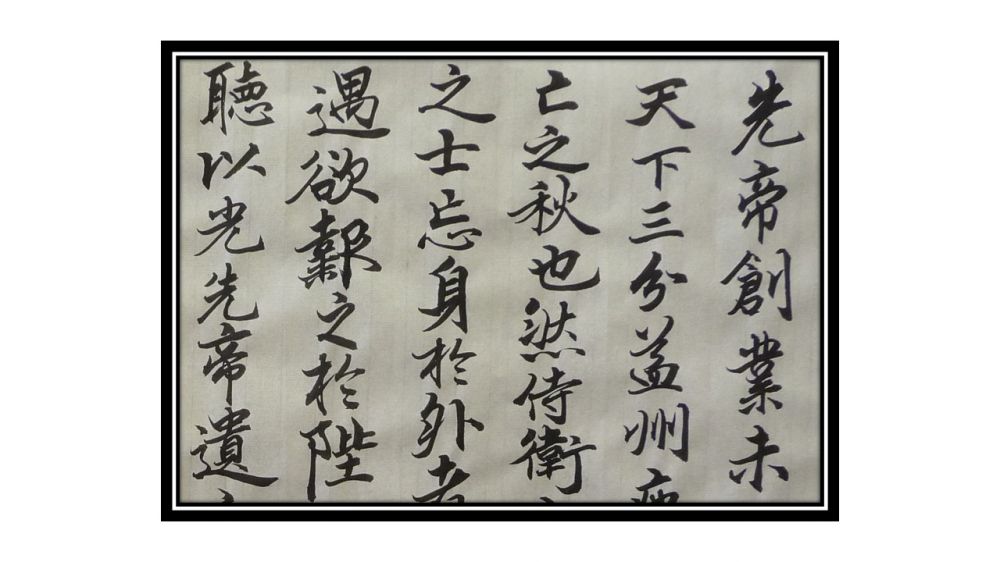 先帝創業未
天下三分益州疲
亡之秋也然侍衛
之士忘身於外者
遇欲報之於陛
聽以光先帝遺